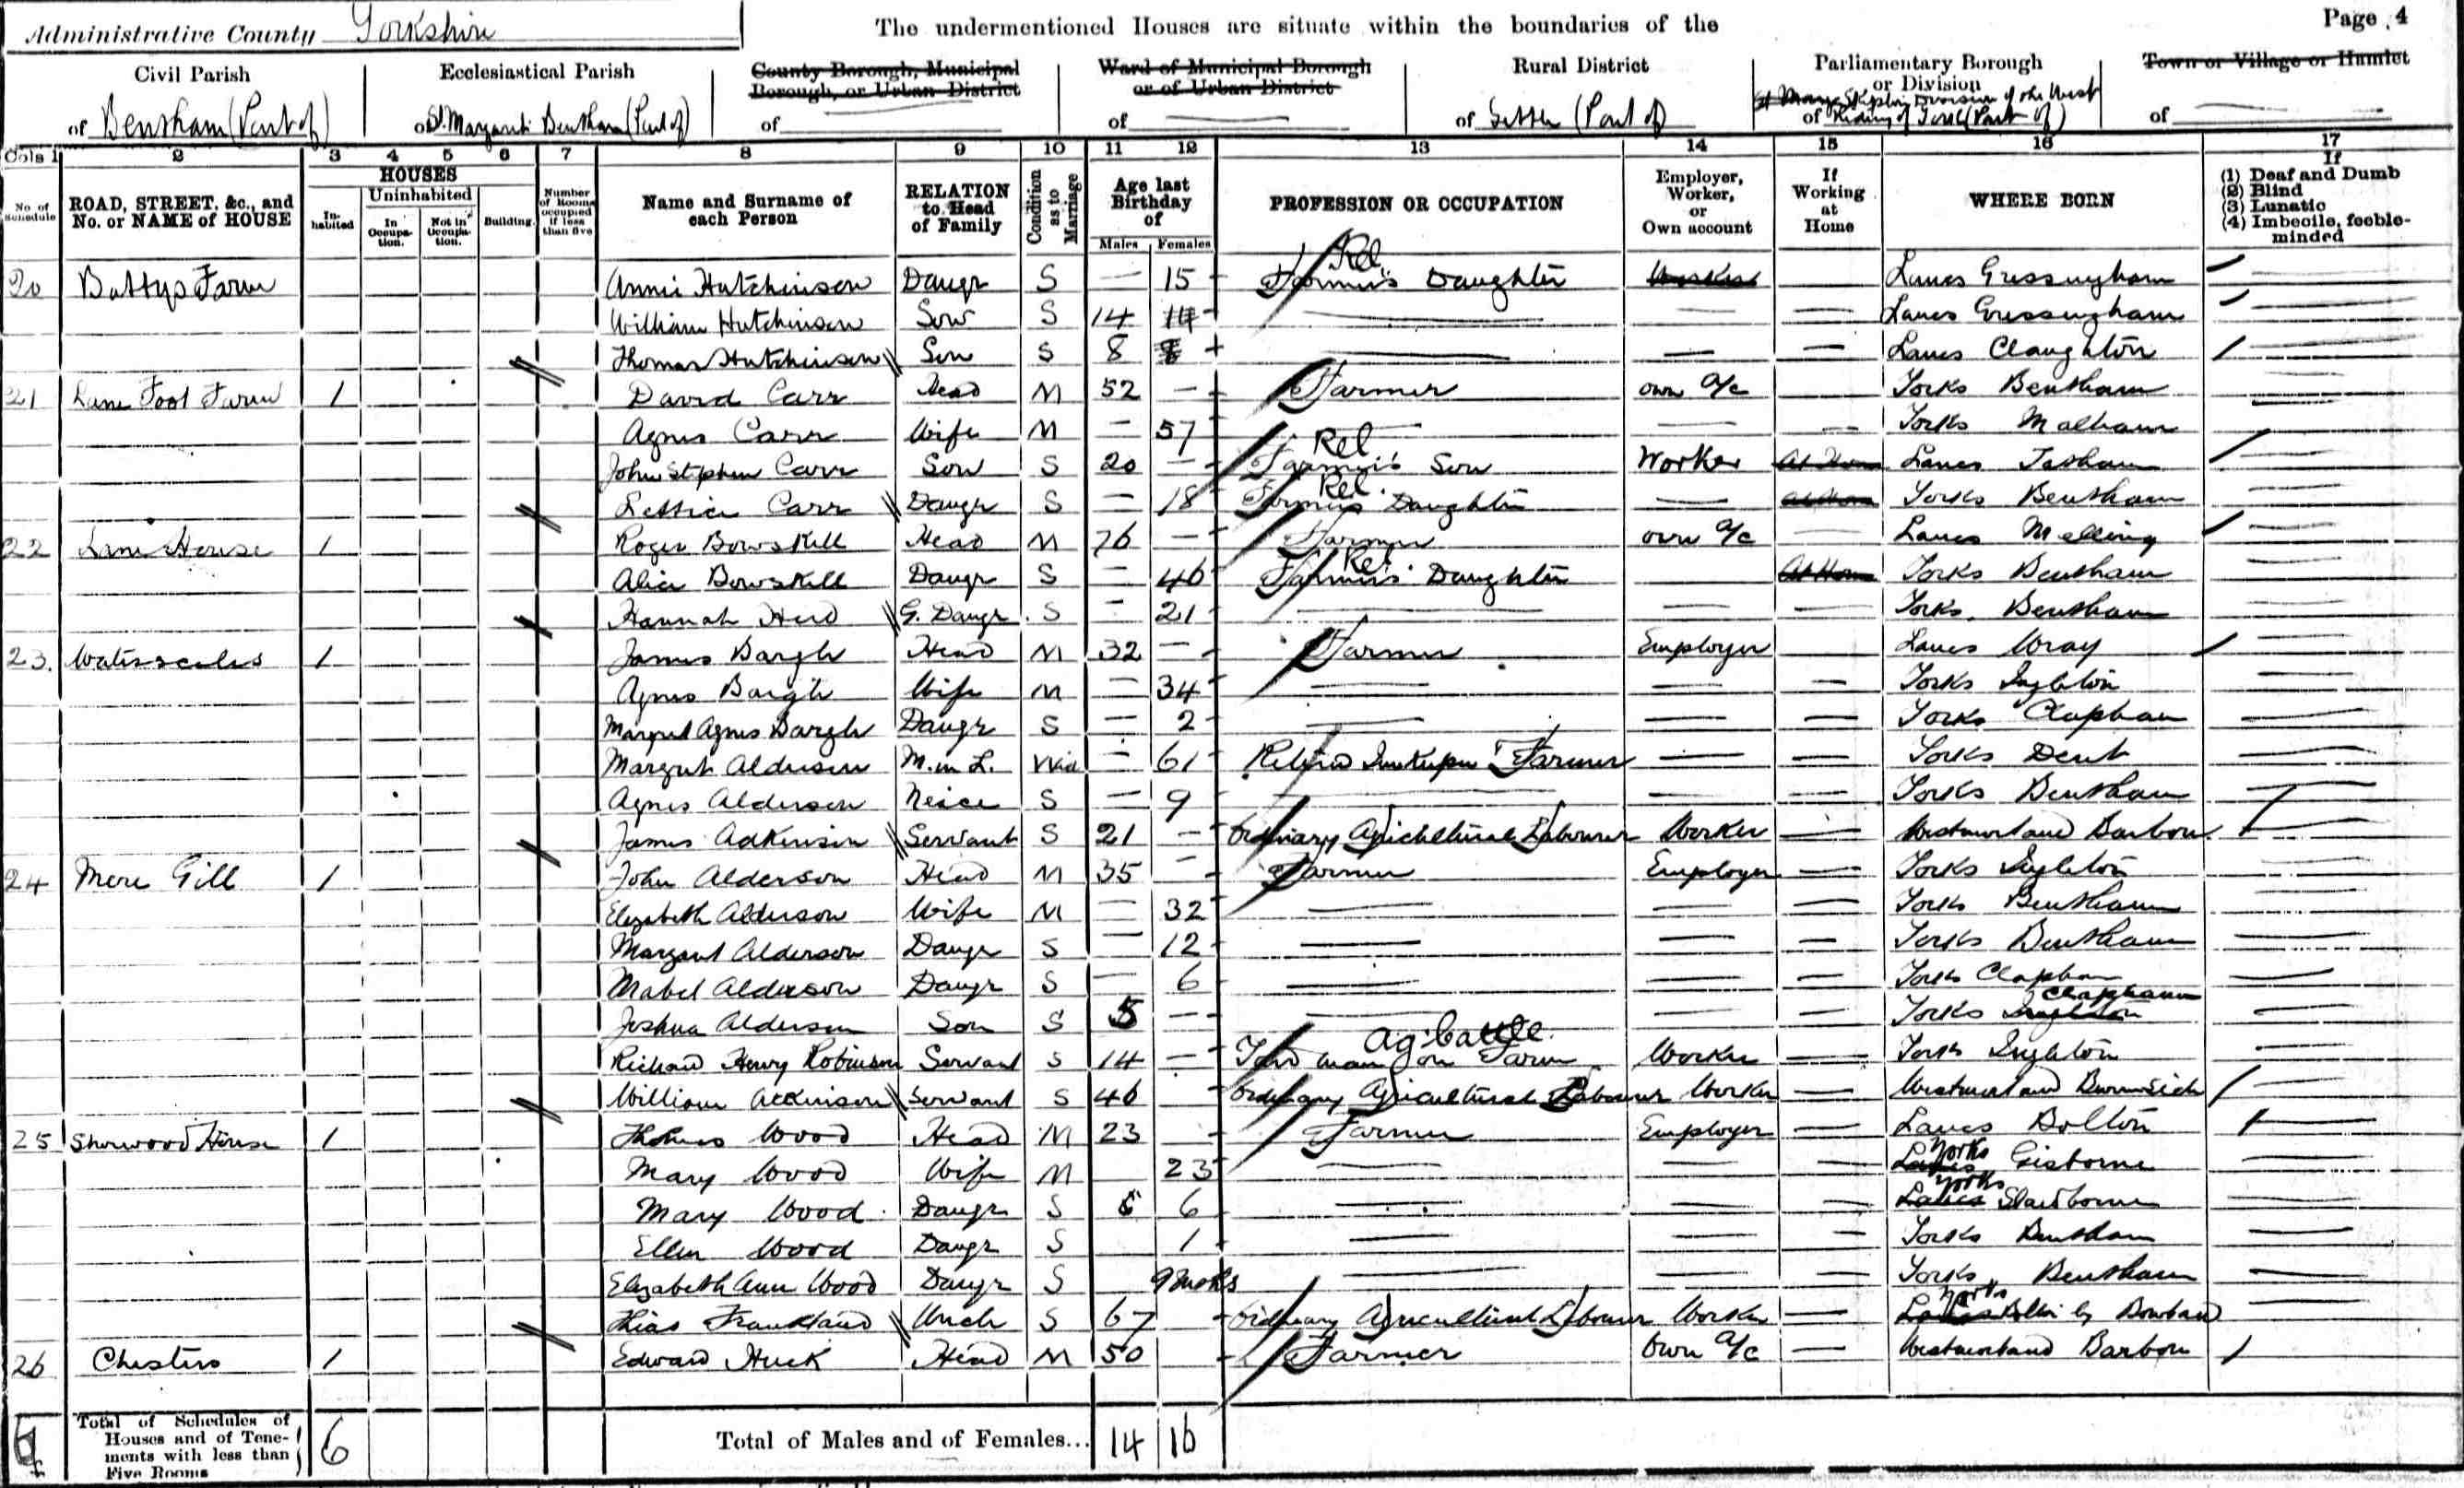 Administrative County Yorkshire
The undermentioned Houses are situate within the boundaries of the
Page 4
Civil Parish of Bentham (Part of)
Ecclesiastical Parish of St. Margaret's Bentham (Part of)
County Borough, Municipal Borough, or Urban District of
Ward of Municipal Borough or of Urban District of
Rural District of Settle (Part of)
Parliamentary Borough or Division of Skipton Division of the West Riding of York (Part of)
Town or Village or Hamlet of
Cols 1 2 3 4 5 6 7 8 9 10 11 12 13 14 15 16 17
No. of Schedule
ROAD, STREET, &c., and No. or NAME of HOUSE
HOUSES
Inhabited
Uninhabited
In Occupation.
Not in Occupation.
Building.
Number of Rooms occupied if less than five
Name and Surname of each Person
RELATION to Head of Family
Condition as to Marriage
Age last Birthday of
Males Females
PROFESSION OR OCCUPATION
Employer, Worker, or Own account
If Working at Home
WHERE BORN
If (1) Deaf and Dumb (2) Blind (3) Lunatic (4) Imbecile, feeble-minded
20 Battys Farm Annie Hutchinson Daugr S — 15 Farmer's Daughter Rel Worker Lancs Gressingham
William Hutchinson Son S 14 14 — — — Lancs Gressingham
Thomas Hutchinson Son S 8 8 — — — Lancs Claughton
21 Lane Foot Farm 1 David Carr Head M 52 — Farmer own a/c Yorks Bentham
Agnes Carr Wife M — 57 — — — Yorks Malham
John Stephen Carr Son S 20 — Farmer's Son Rel Worker At Home Lancs Tatham
Lettice Carr Daugr S — 18 Farmers Daughter Rel — At Home Yorks Bentham
22 Lane House 1 Roger Bowskill Head M 76 — Farmer own a/c — Lancs Melling
Alice Bowskill Daugr S — 46 Farmer's Daughter Rel At Home Yorks Bentham
Hannah Herd G. Daugr S — 21 — — — Yorks. Bentham
23. Waterscales 1 James Bargh Head M 32 — Farmer Employer Lancs Wray
Agnes Bargh Wife M — 34 — — — Yorks Ingleton
Margret Agnes Bargh Daugr S — 2 — — — Yorks Clapham
Margret Alderson M. in L. Wid — 61 Retired Innkeeper Farmer — — Yorks Dent
Agnes Alderson Neice S — 9 — — — Yorks Bentham
James Adkinson Servant S 21 — Ordinary Agricultural Labourer Worker — Westmorland Barbon
24 Mere Gill 1 John Alderson Head M 35 — Farmer Employer — Yorks Ingleton
Elizabeth Alderson Wife M — 32 — — Yorks Bentham
Margaret Alderson Daugr S — 12 — — — Yorks Bentham
Mabel Alderson Daugr S — 6 — — — Yorks Clapham
Joshua Alderson Son S 5 — — — — Yorks Ingleton Clapham
Richard Henry Robinson Servant S 14 — man on Farm Ag. Cattle Worker — Yorks Ingleton
William Atkinson Servant S 46 Ordinary Agricultural Labourer Worker — Westmorland Burneside
25 Sherwood House 1 Thomas Wood Head M 23 Farmer Employer — Lancs Bolton
Mary Wood Wife M 23 — — — Lancs Yorks Gisborne
Mary Wood Daugr S 6 6 — — — Lancs Yorks
Ellen Wood Daugr S 1 — — — Yorks Bentham
Elizabeth Ann Wood Daugr S 9 Mths — — — Yorks Bentham
Frankland Uncle S 67 Ordinary Agricultural Labourer Worker — Lancs Yorks Bolton by Bowland
26 Chesters 1 Edward Huck Head M 50 Farmer Own a/c — Westmorland Barbon
6 Total of Schedules of Houses and of Tenements with less than Five Rooms 6
Total of Males and of Females... 14 16